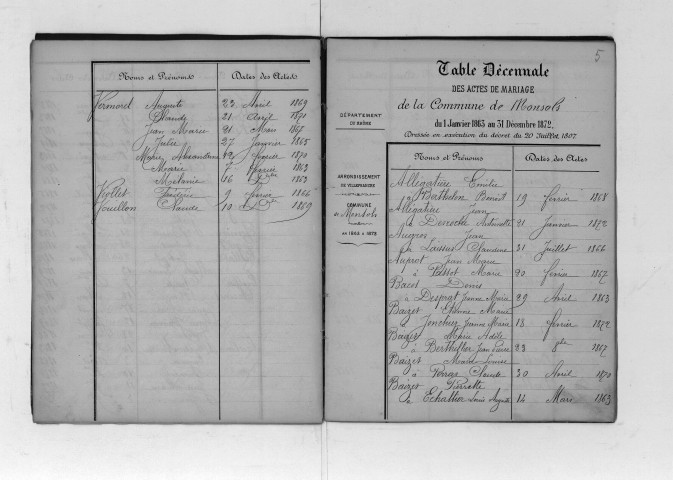 Noms et Prénoms Dates des Actes
Vermorel Auguste 23 Avril 1869
Claude 21 Avril 1870
Jean Marie 21 Mars 1867
Julie 27 Janvier 1865
Marie Alexandrine 12 1870
Marie 7 1863
Melanie 1863
Viollet 9 1866
Fouillon Claude 10 1869
5
Table Décennale
DES ACTES DE MARIAGE
de la Commune de Monsols
du 1 Janvier 1863 au 31 Décembre 1872,
Dressée en exécution du décret du 20 Juillet 1807
DÉPARTEMENT
DU RHÔNE
ARRONDISSEMENT
DE VILLEFRANCHE
COMMUNE
de Monsols
DE 1863 à 1872
Noms et Prénoms Dates des Actes
Allégatière Emilie
à Berthelon Benoit 19 février 1868
Allégatière Jean
à Antoinette 21 Janvier 1872
Augros Jean
à Lassus Claudine 31 Juillet 1866
Auprot Jean Marie
à Marie 20 février 1867
Bacot Denis
à Desprat Jeanne Marie 29 Avril 1863
Baizet Etienne Marie
à Jonchier Jeanne Marie 13 février 1872
Baizet Marie Adèle
à Berthelier Jean Pierre 23 8bre 1867
Baizet Marie Louise
à Perras Claude 30 Avril 1870
Baizet Pierrette
à Echallier Louis Auguste 14 Mars 1863